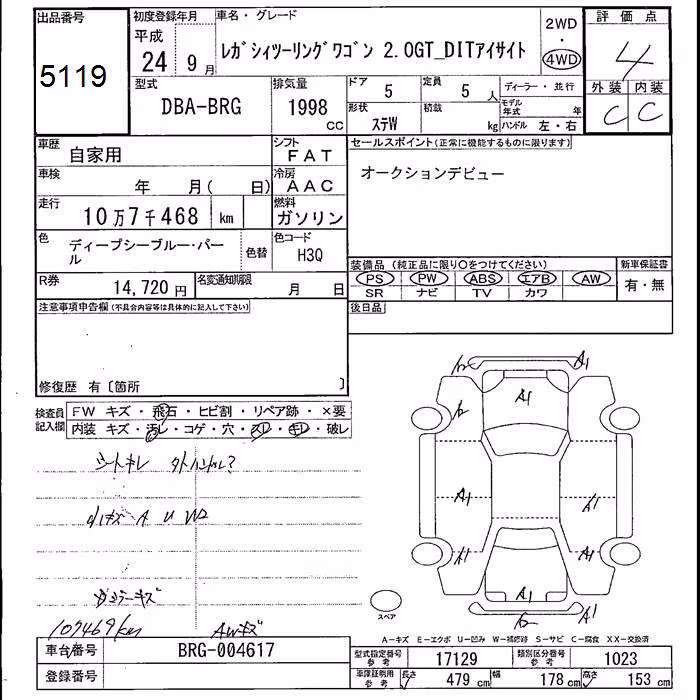 出品番号
5119
初度登録年月
平成
24 9 月
車名・グレード
レガシィツーリングワゴン 2.0GT_DITアイサイト
2WD
・
4WD
評価点
4
外装 内装
C C
型式
DBA-BRG
排気量
1998
CC
ドア
5
定員
5 人
形状
ステW
積載
kg
ディーラー・並行
モデル年式 年
ハンドル 左・右
車歴
自家用
シフト
FAT
車検
年 月( 日)
冷房
AAC
走行
10万7千468 km
燃料
ガソリン
色
ディープシーブルー・パール
色替
色コード
H3Q
R券
14,720 円
名変通知期限
月 日
セールスポイント(正常に機能するものに限ります)
オークションデビュー
装備品 (純正品に限り○をつけてください)
PS PW ABS エアB AW
SR ナビ TV カワ
新車保証書
有・無
後日品
注意事項申告欄(不具合内容等は具体的に記入して下さい)
修復歴 有〔箇所 〕
検査員記入欄
FW キズ・飛石・ヒビ割・リペア跡・×要
内装 キズ・汚レ・コゲ・穴・スレ・キレ・破レ
シートキレ
小キズ A U W2
107469km
AWキズ
A1
A1
A1
A1
A1
A1
A1
A1
A1
スペア
A-キズ E-エクボ U-凹み W-補修跡 S-サビ C-腐食 XX-交換済
車台番号
BRG-004617
登録番号
型式指定番号
参考
17129
類別区分番号
参考
1023
車庫証明用
参考
長さ
479 cm
幅
178 cm
高さ
153 cm